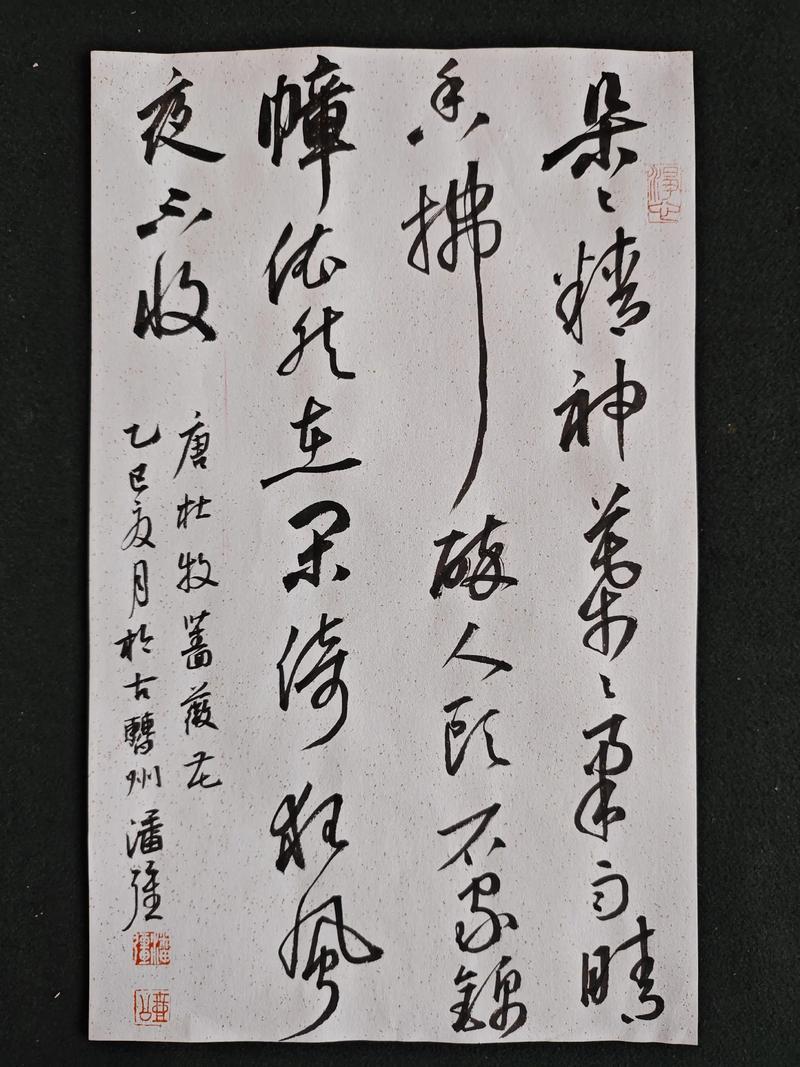 朵〻精神葉〻柔雨晴
香拂醉人頭石家錦
幛依然在閑倚狂風
夜不收
唐杜牧薔薇花
乙巳夏月於古州潘